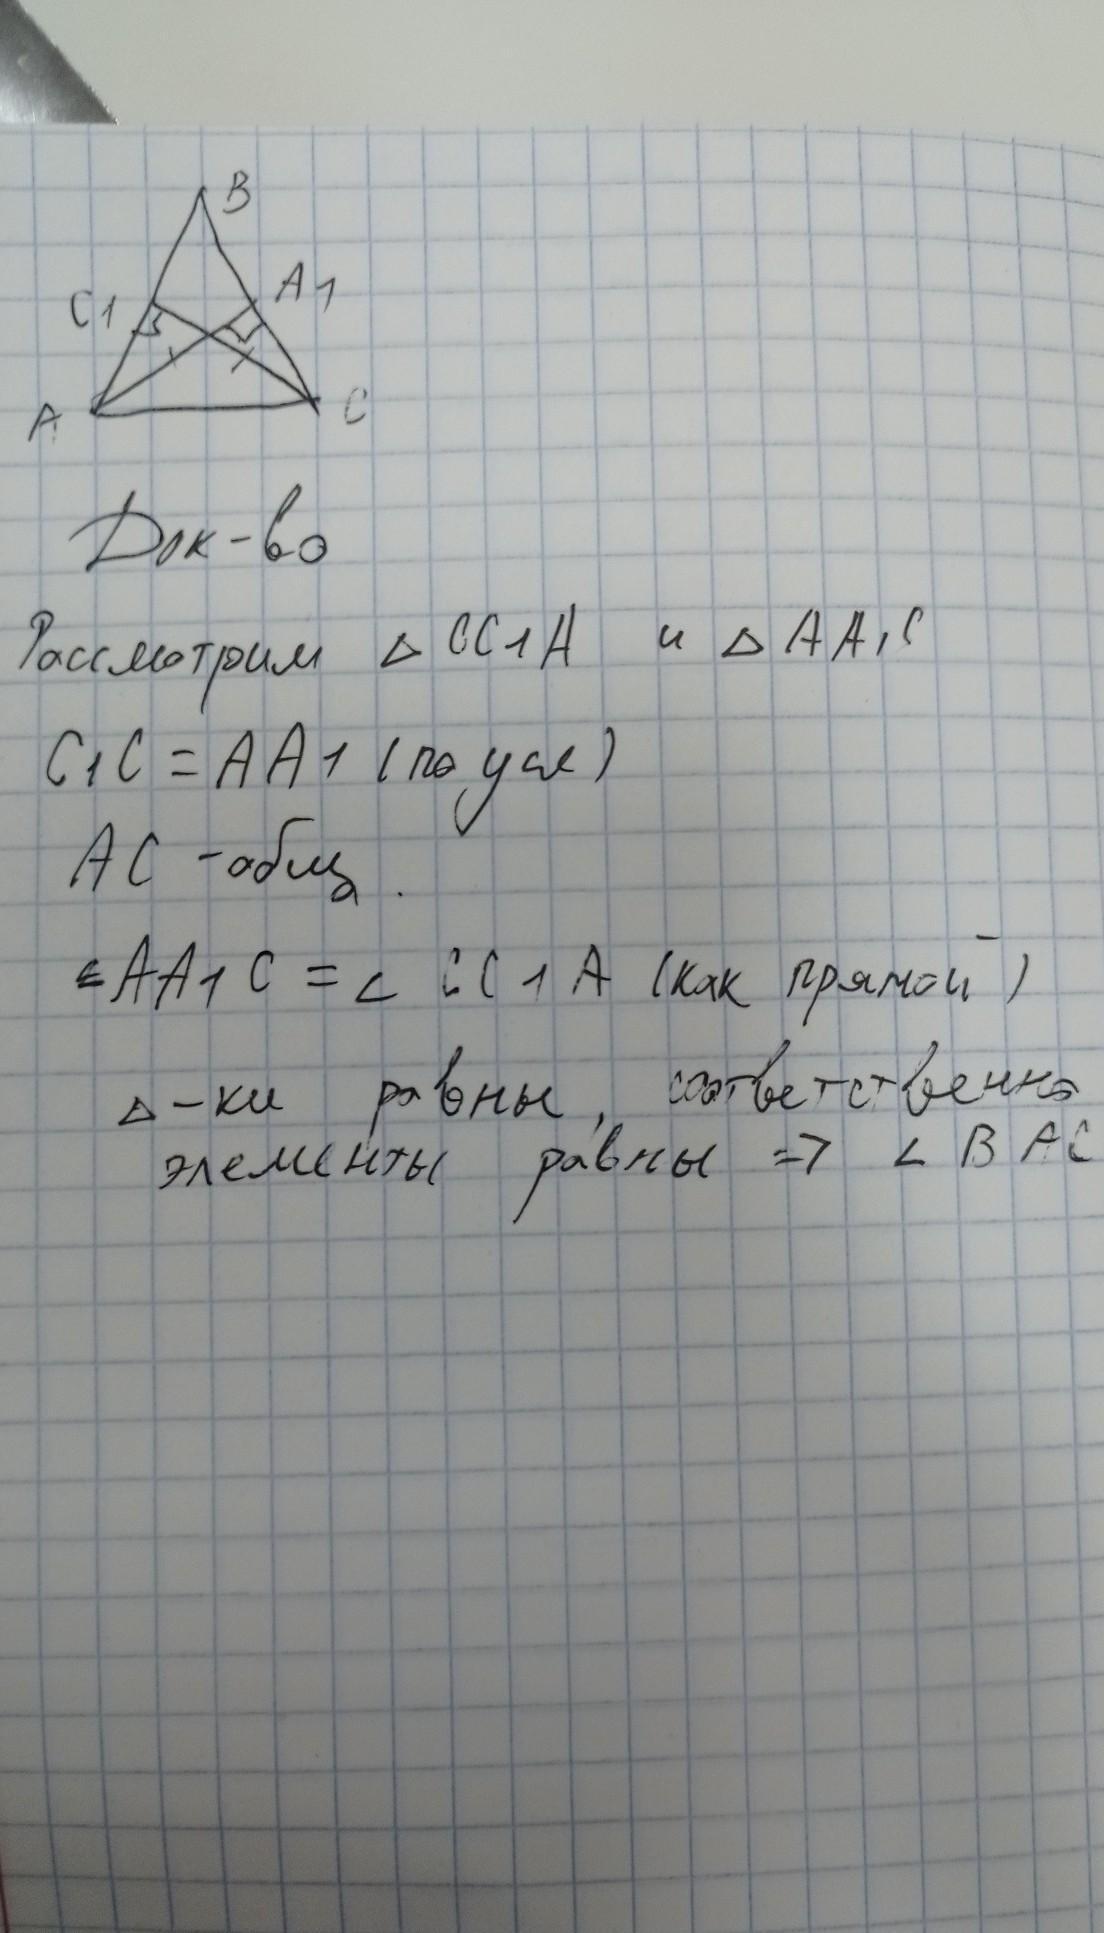 B
C1
A1
A
C
Док-во
Рассмотрим △ CC1A и △ AA1C
C1C = AA1 (по усл)
AC - общ.
∠AA1C = ∠ CC1A (как прямой)
△-ки равны, соответственно
элементы равны => ∠ BAC